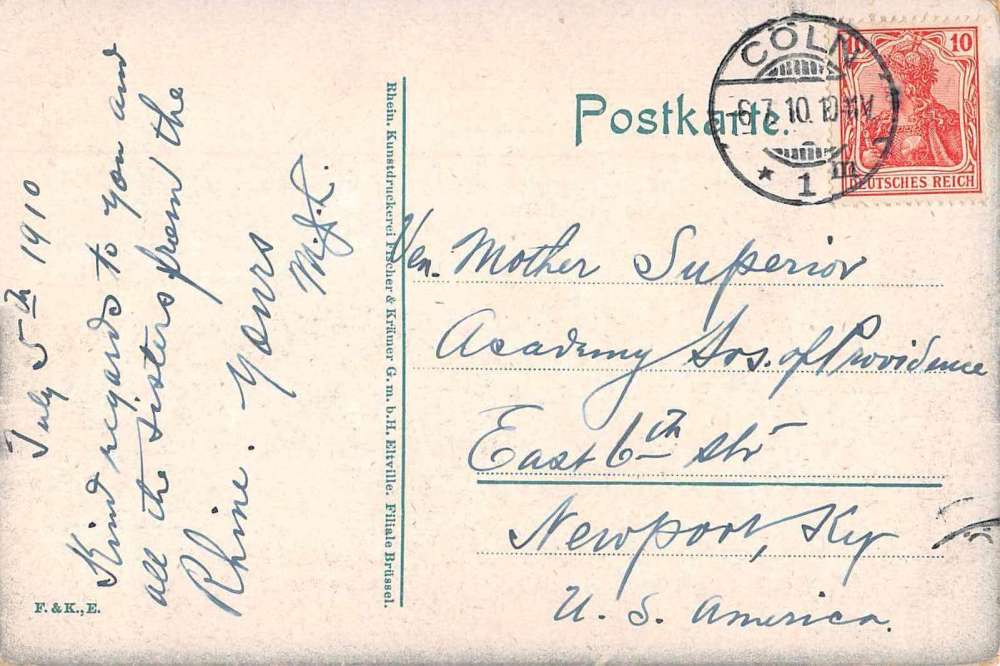 July 5th 1910
Kind regards to you and
all the sisters from the
Rhine. Yours
M.J.C.
F. & K., E.
Rhein. Kunstdruckerei Fischer & Krämer G. m. b. H. Eltville. Filiale Brüssel.
Postkarte.
CÖLN
6.7.10.10-11V.
* 1 m
10 10
DEUTSCHES REICH
Ven. Mother Superior
Academy Srs. of Providence
East 6th str
Newport, Ky
U. S. America.